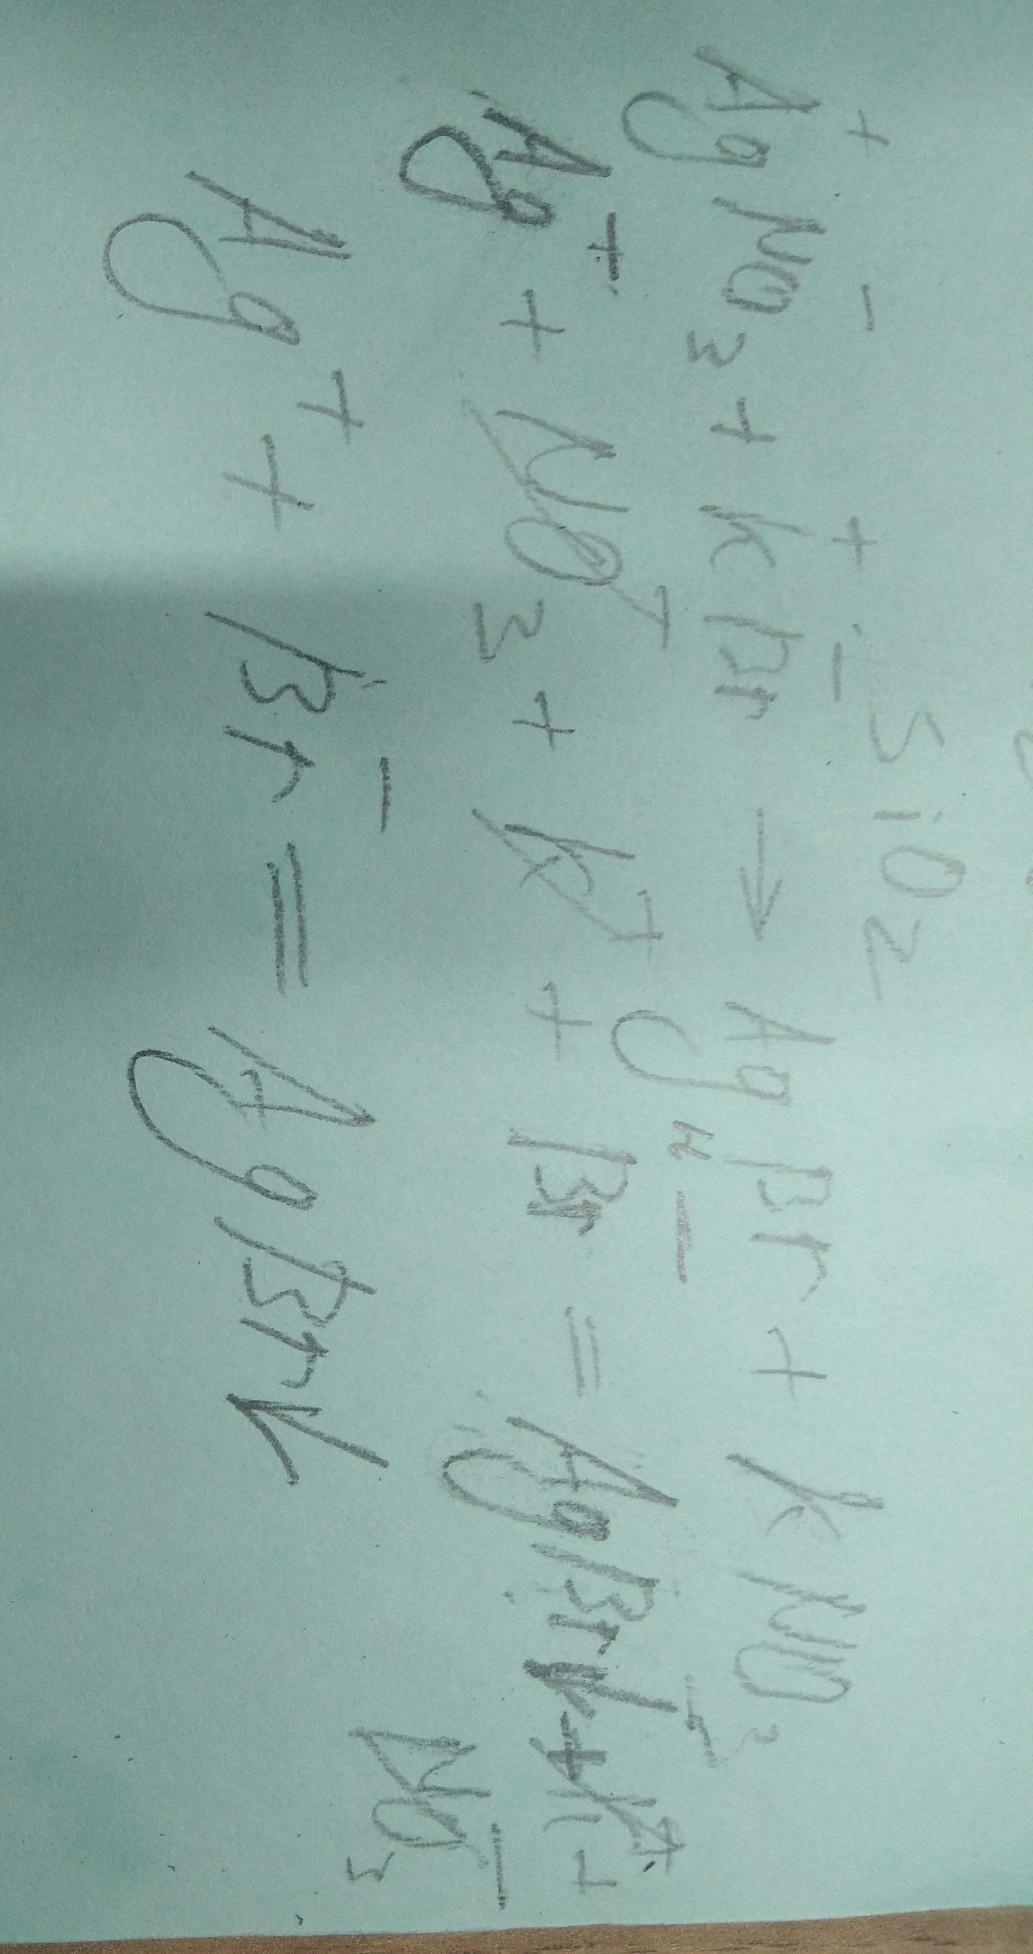 SiO2
AgNO3 + KBr → AgBr + KNO3
+ - + -
н -
Ag⁺ + NO3⁻ + K⁺ + Br⁻ = AgBr↓ + K⁺ +
NO3⁻
Ag⁺ + Br⁻ = AgBr↓